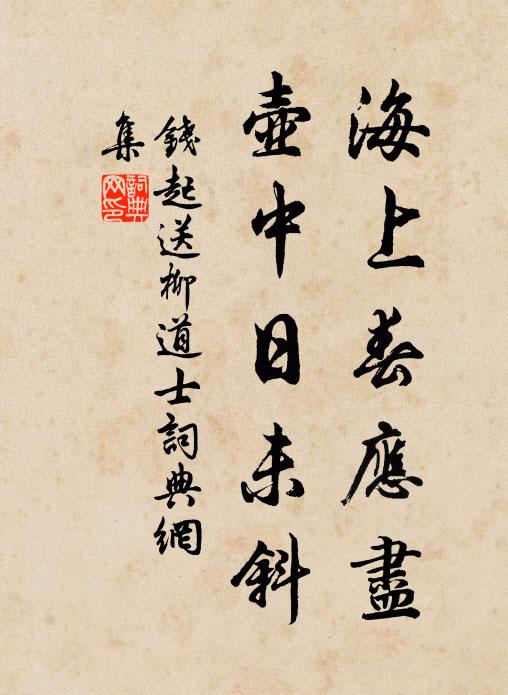 海上春應盡
壺中日未斜
錢起送柳道士詞典網
集
詞典
网印